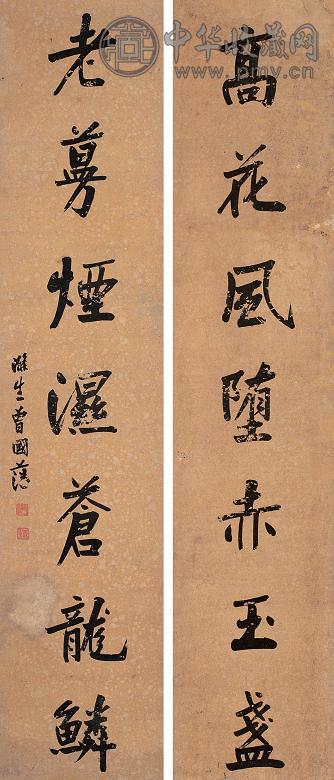 高花風墮赤玉盞
老蔓煙濕蒼龍鱗
滌生曾國藩
中华收藏网
www.pmyv.cn